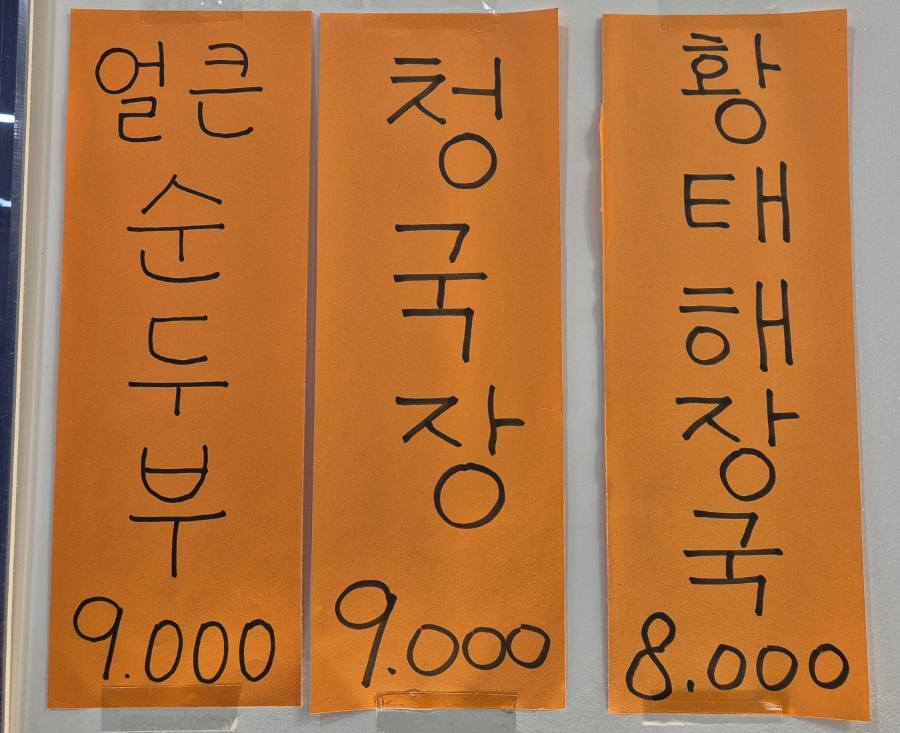 얼큰
순
두
부
9.000
청
국
장
9.000
황
태
해
장
국
8.000